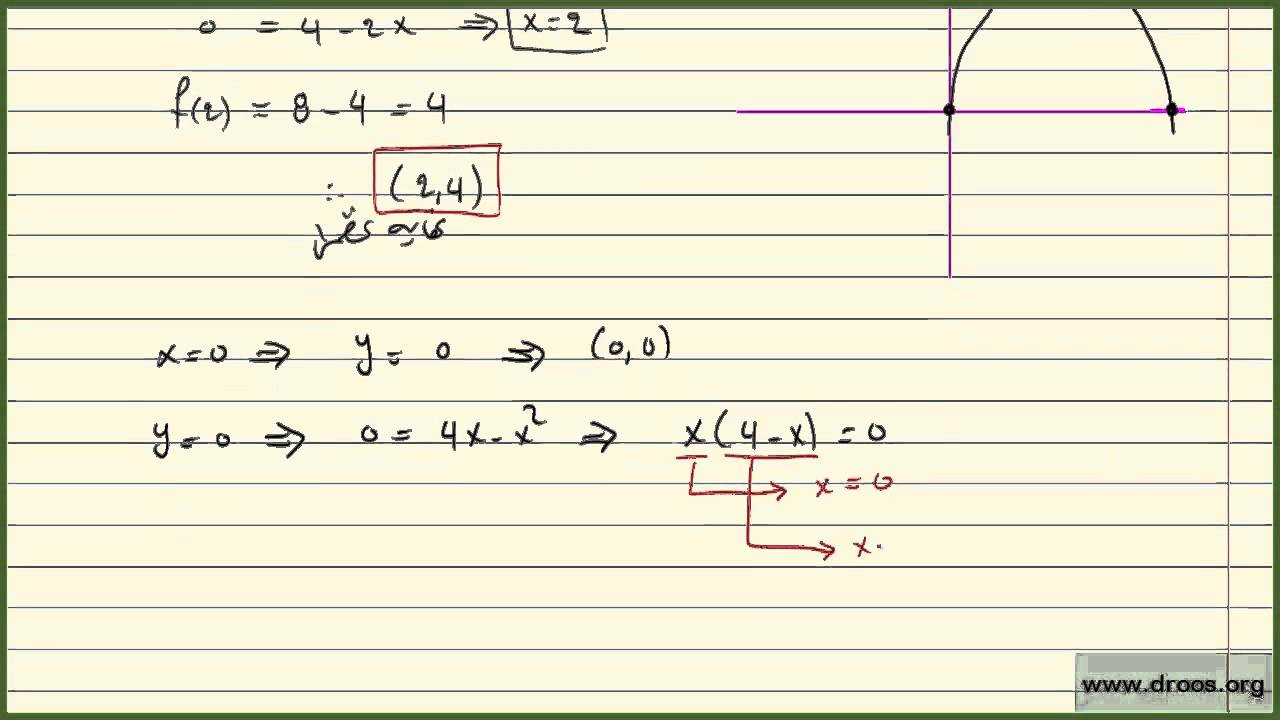 0 = 4 - 2x ⇒ x = 2
f(2) = 8 - 4 = 4
∴ (2,4)
x = 0 ⇒ y = 0 ⇒ (0,0)
y = 0 ⇒ 0 = 4x - x² ⇒ x(4 - x) = 0
x = 0
x
www.droos.org